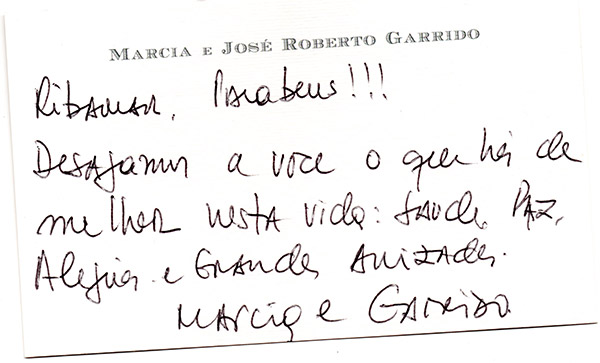 MARCIA E JOSÉ ROBERTO GARRIDO
Ribamar, Parabens!!!
Desajamos a voce o que há de
melhor nesta vida: saude, PAZ,
Alegria e GRANDES AMIZADES.
MARCIA e GARRIDO